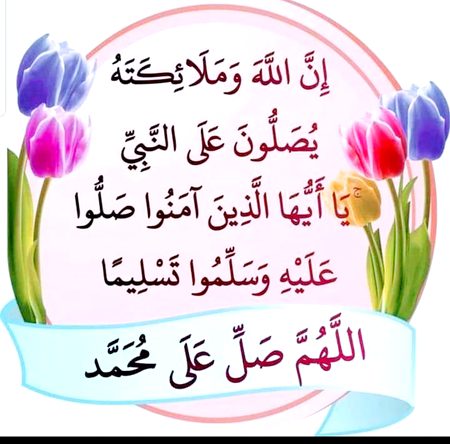 إِنَّ اللَّهَ وَمَلَائِكَتَهُ
يُصَلُّونَ عَلَى النَّبِيِّ ۚ
يَا أَيُّهَا الَّذِينَ آمَنُوا صَلُّوا
عَلَيْهِ وَسَلِّمُوا تَسْلِيمًا
اللَّهُمَّ صَلِّ عَلَى مُحَمَّد